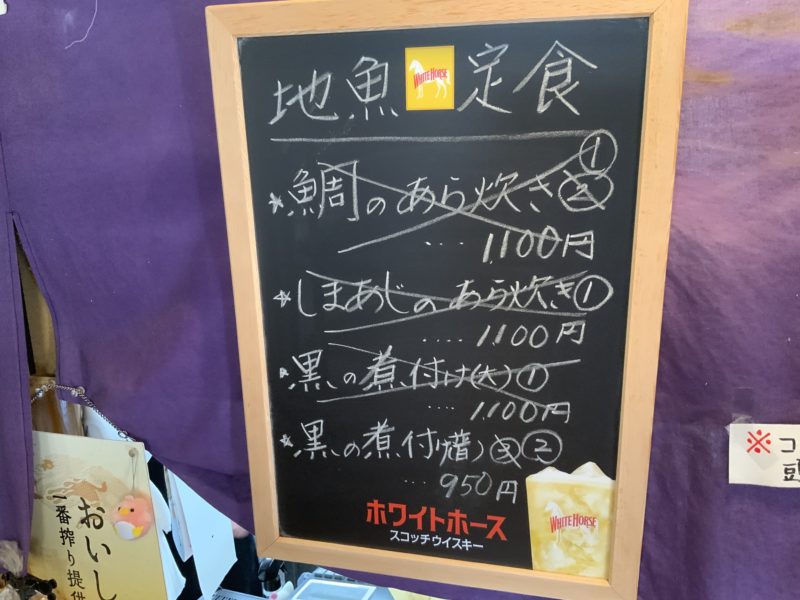 地魚 WHITE HORSE 定食
①
★鯛のあら炊き②
‥‥1,100円
☆しまあじのあら炊き①
‥‥1100円
★黒の煮付け(大)①
‥‥1,100円
★黒の煮付(普)③②
‥‥950円
ホワイトホース
スコッチウイスキー
WHITE HORSE
おいし
一番搾り提供
※コ
頭